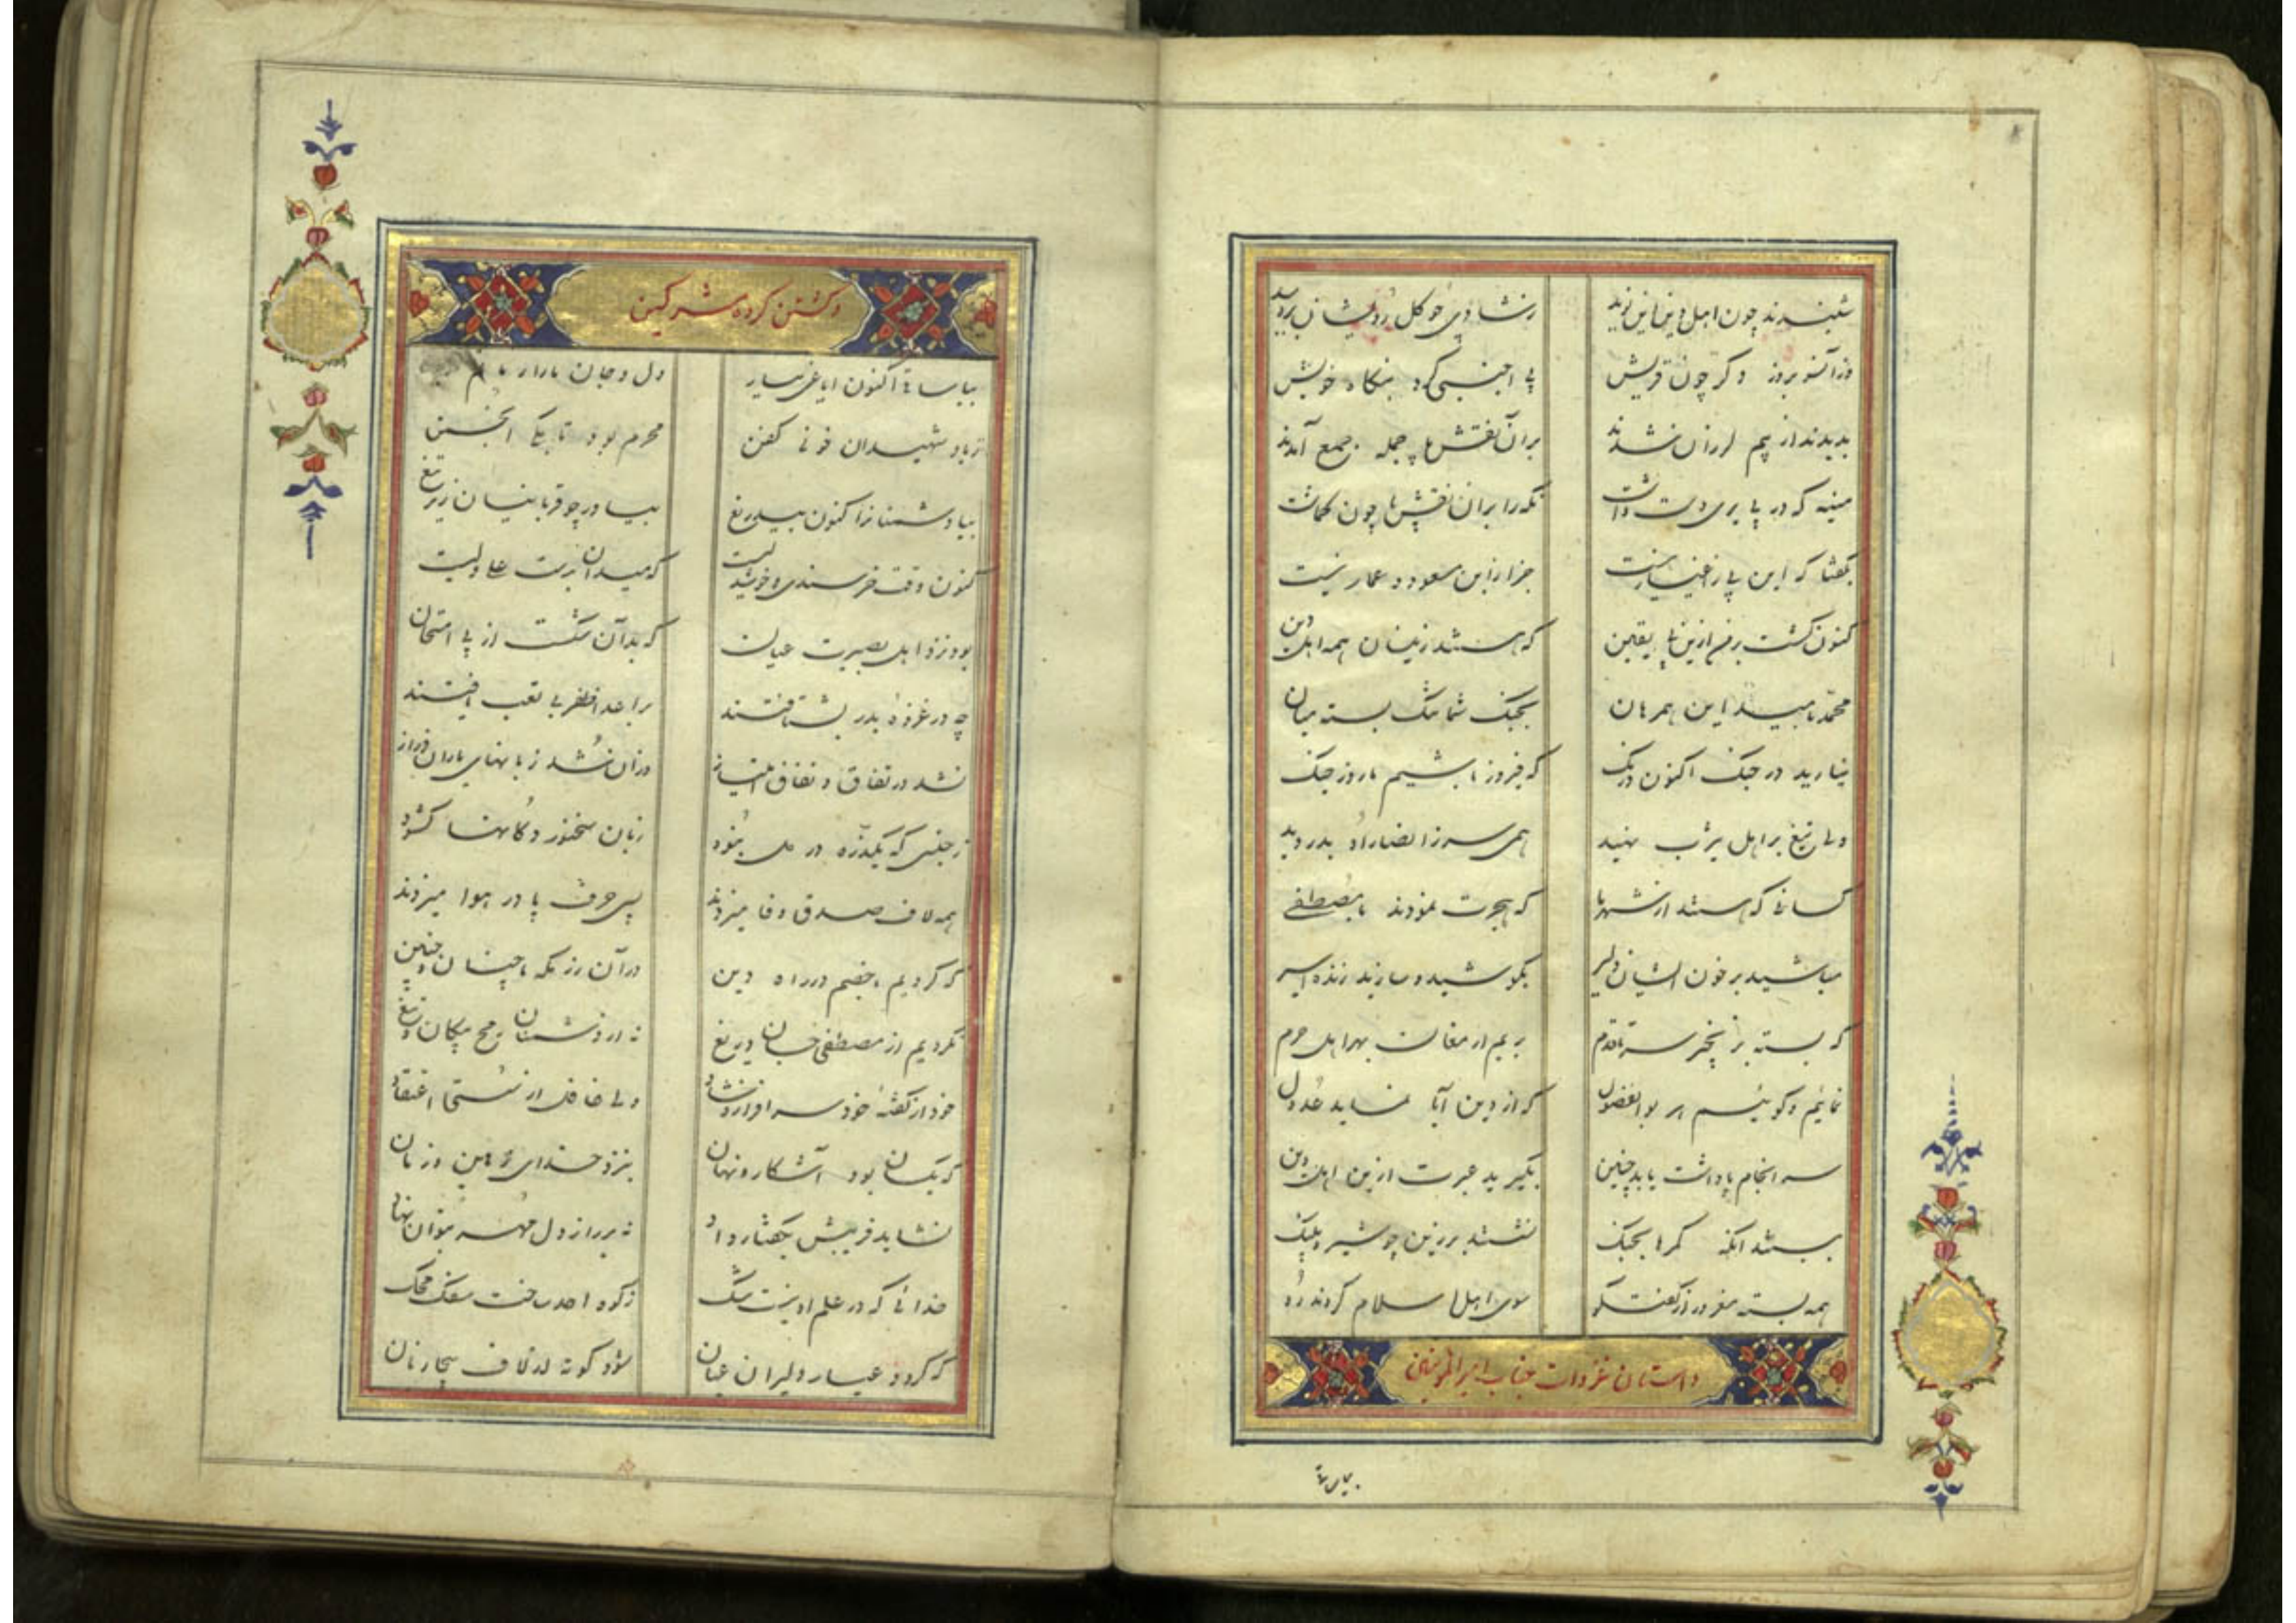 شنیدند چون اهل دین این نوید ز شادی چو گل رویشان بردمید
وز آنسو بروز دگر چون قریش پی اجنبی گرد بنگاه خویش
بدیدند از بیم لرزان شدند بر آن نقشها جمله جمع آمدند
منبه که در پا بری دست داشت نگه را بر آن نقشها چون گماشت
بگفتا که این پی ز اغیار نیست جز از ابن مسعود و عمار نیست
کنون گشت برمن ازین پا یقین که هستند زینسان همه اهل دین
محمد بامید این همرهان بجنگ شما تنگ بسته میان
نیارید در جنگ اکنون درنگ که فیروز باشیم ما روز جنگ
ولی تیغ بر اهل یثرب نهید همی سر ز انصار را بدروید
کسانی که هستند از شهر ما که هجرت نمودند با مصطفی
مباشید بر خون ایشان دلیر بکوشید و سازید زنده اسیر
که بسته بزنجیر سر تا قدم بریم ارمغان بهر اهل حرم
نمائیم و گوئیم هر بوالفضول که از دین آبا نماید عدول
سرانجام پاداشت یابد چنین بگیرید عبرت ازین اهل دین
ببستند آنگه کمرها بجنگ نشستند بر زین چو شیر و پلنگ
همه بسته مغرور از گفتگو سوی اهل اسلام کردند رو
داستان غزوات جناب امیرالمؤمنین
بیا ساقی
و کشتن کرده مشرکین
بیا ساقی اکنون ایاغی بیار دل و جان ما را
ز یاد شهیدان خونی کفن محرم بود تا یکی انجمن
بیا دشمنانرا کنون بیدریغ بیاور چو قربانیان زیر تیغ
کنون وقت خرسندی و خوشدلیست که میدان بدست علی ولیست
بود نزد اهل بصیرت عیان که بد آن شکست از پی امتحان
چه در غزوه بدر بشتافتند بر اعدا ظفر بی تعب یافتند
نشد در نفاق و نفاق امتیاز در آن شد زبانهای یاران دراز
ز جنسی که یکذره در دل نبود زبان سخنور دکانها گشود
همه لاف صدق و وفا میزدند پس حرف پا در هوا میزدند
که کردیم با خصم در راه دین در آن رزمگه با چنان و چنین
نکردیم از مصطفی جان دریغ نه از دشمنان رمح و پیکان و تیغ
خود از گفته خود سرافراز و شاد ولی غافل از سستی اعتقاد
که یکسان بود آشکار و نهان بنزد خدای زمین و زمان
نشاید فریبش بگفتار داد نه بر راز دل مهر بتوان نهاد
خدائی که در علم او نیست شک ز کوه احد ساخت سنگ محک
که گردد عیار دلیران عیان شود کوته از لاف بیجا زبان